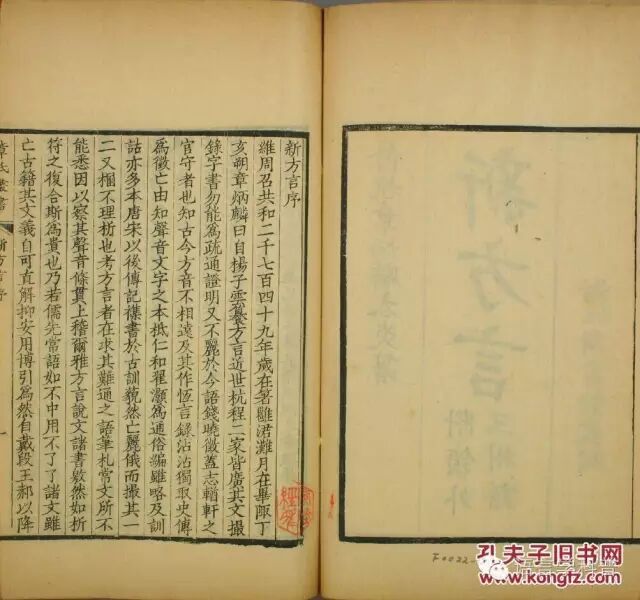 新方言序
維周召共和二千七百四十九年歲在著雝涒灘月在畢陬丁
亥朔章炳麟曰自楊子雲纂方言近世杭程二家皆廣其文撮
錄字書勿能爲疏通證明又不麗於今語錢曉徵蓋志輶軒之
官守者也知古今方音不相遠及其作恆言錄沾沾獨取史傳
爲徵亡由知聲音文字之本柢仁和翟灝爲通俗編雖略及訓
詁亦多本唐宋以後傳記襍書於古訓藐然亡麗俄而撮其一
二又梱不理析也考方言者在求其難通之語筆札常文所不
能悉因以察其聲音條貫上稽爾雅方言說文諸書敫然如析
符之復合斯爲貴也乃若儒先常語如不中用不了了諸文雖
亡古籍其文義自可直解抑安用博引爲然自戴段王郝以降
章氏叢書 新方言序 一
F0022-
孔夫子旧书网
www.kongfz.com